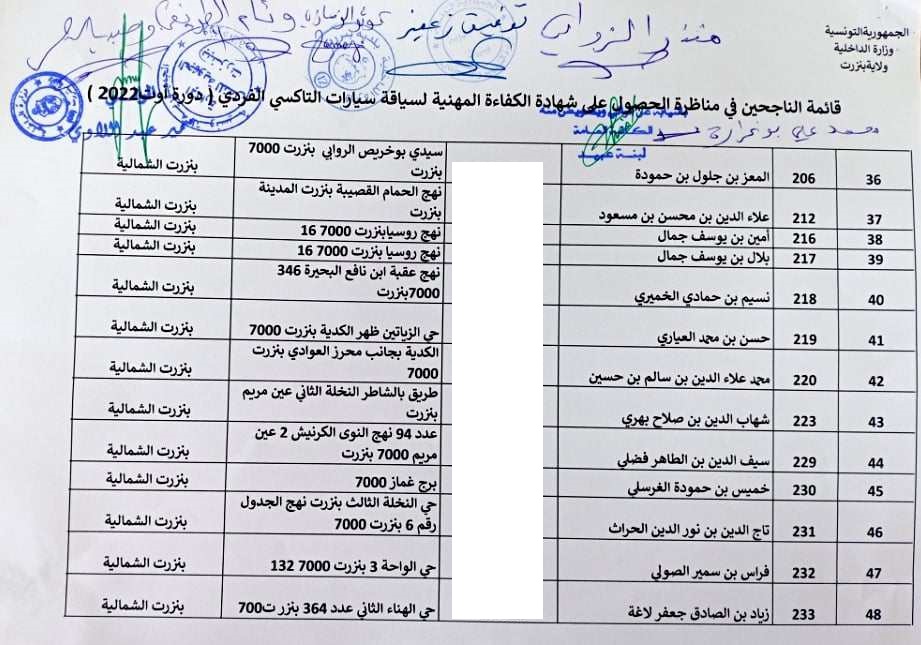 الجمهورية التونسية
وزارة الداخلية
ولاية بنزرت
توفيق زعفير
قائمة الناجحين في مناظرة الحصول على شهادة الكفاءة المهنية لسياقة سيارات التاكسي الفردي ( دورة أوت 2022 )
الكاتبة العامة
لبنة عبيد
36 206 المعز بن جلول بن حمودة سيدي بوخريص الروابي بنزرت 7000 بنزرت بنزرت الشمالية
37 212 علاء الدين بن محسن بن مسعود نهج الحمام القصيبة بنزرت المدينة بنزرت بنزرت الشمالية
38 216 أمين بن يوسف جمال نهج روسيابنزرت 7000 16 بنزرت الشمالية
39 217 بلال بن يوسف جمال نهج روسيا بنزرت 7000 16 بنزرت الشمالية
40 218 نسيم بن حمادي الخميري نهج عقبة ابن نافع البحيرة 346 7000بنزرت بنزرت الشمالية
41 219 حسن بن محمد العياري حي الزياتين ظهر الكدية بنزرت 7000 بنزرت الشمالية
42 220 محمد علاء الدين بن سالم بن حسين الكدية بجانب محرز العوادي بنزرت 7000 بنزرت الشمالية
43 223 شهاب الدين بن صلاح بهري طريق بالشاطر النخلة الثاني عين مريم بنزرت بنزرت الشمالية
44 229 سيف الدين بن الطاهر فضلي عدد 94 نهج النوى الكرنيش 2 عين مريم 7000 بنزرت بنزرت الشمالية
45 230 خميس بن حمودة الغرسلي برج غماز 7000 بنزرت الشمالية
46 231 تاج الدين بن نور الدين الحراث حي النخلة الثالث بنزرت نهج الجدول رقم 6 بنزرت 7000 بنزرت الشمالية
47 232 فراس بن سمير الصولي حي الواحة 3 بنزرت 7000 132 بنزرت الشمالية
48 233 زياد بن الصادق جعفر لاغة حي الهناء الثاني عدد 364 بنزر ت700 بنزرت الشمالية